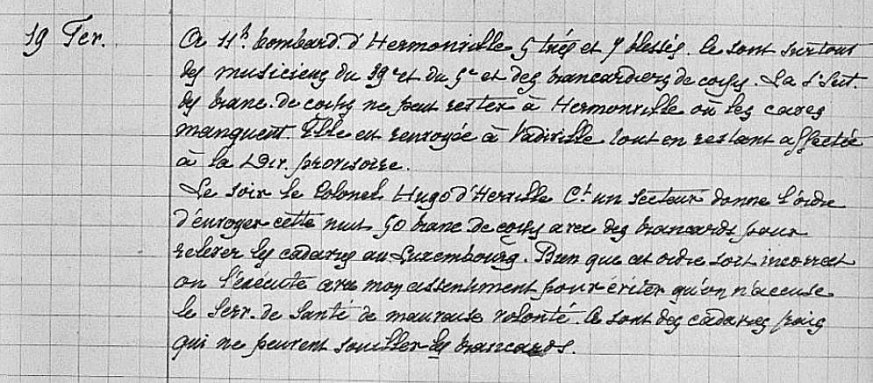 19 Fev. A 11h bombard. d'Hermonville 5 tués et 7 blessés. Ce sont surtout
des musiciens du 39e et du 5e et des brancardiers de corps. La 1e Sect.
des branc. de corps ne peut rester à Hermonville où les caves
manquent. Elle est renvoyée à Vadiville tout en restant affectée
à la Dir. provisoire.
Le soir le Colonel Hugo d'Herville Ct un secteur donne l'ordre
d'envoyer cette nuit 50 branc. de corps avec des brancards pour
relever les cadavres au Luxembourg. Bien que cet ordre soit incorrect
on l'exécute avec mon assentiment pour éviter qu'on n'accuse
le Serv. de Santé de mauvaise volonté. Ce sont des cadavres frais
qui ne peuvent souiller les brancards.